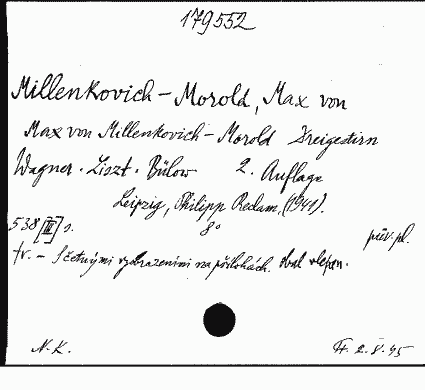 179552
Millenkovich - Morold, Max von
Max von Millenkovich - Morold Dreigestirn
Wagner · Liszt · Bülow 2. Auflage
Leipzig, Philipp Reclam, (1941).
538 [III] s. 8° pův. pl.
fr. - S četnými vyobrazeními na přílohách. obal vlepen.
N. K. 2. 8. 45